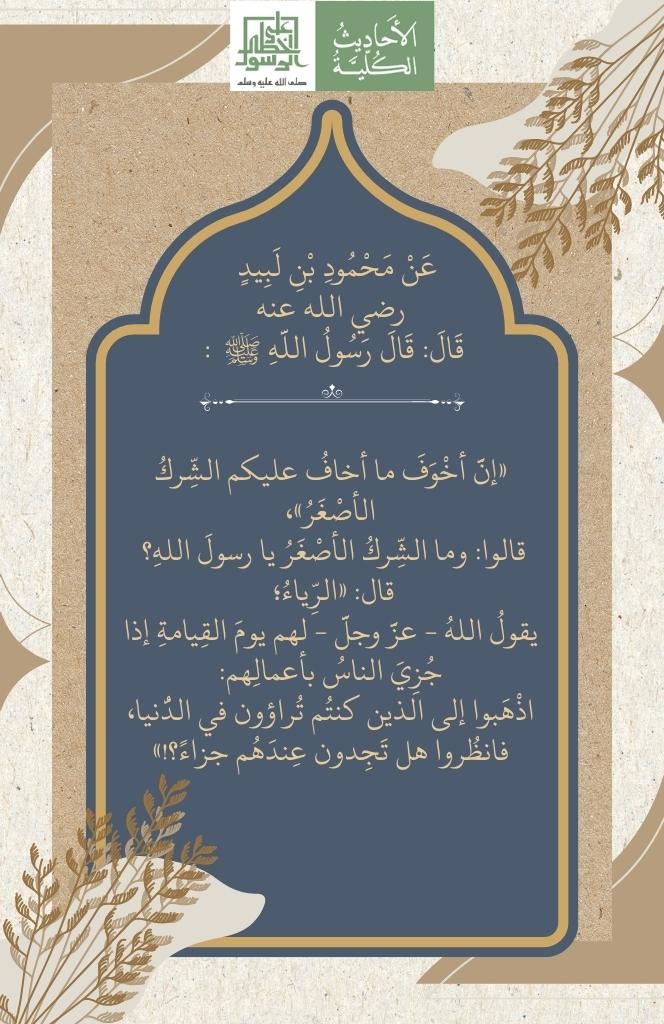 على
خطى
الرسول
صلى الله عليه وسلم
الأَحَادِيثُ
الكُلِّيَّةُ
عَنْ مَحْمُودِ بْنِ لَبِيدٍ
رضي الله عنه
قَالَ: قَالَ رَسُولُ اللّهِ ﷺ :
«إنَّ أخْوَفَ ما أخافُ عليكم الشِّركُ
الأصْغَرُ»،
قالوا: وما الشِّركُ الأصْغَرُ يا رسولَ اللهِ؟
قال: «الرِّياءُ؛
يقولُ اللهُ – عزّ وجلّ – لهم يومَ القِيامةِ إذا
جُزِيَ الناسُ بأعمالِهم:
اذْهَبوا إلى الذين كنتُم تُراؤون في الدُّنيا،
فانظُروا هل تَجِدون عِندَهُم جزاءً؟!»